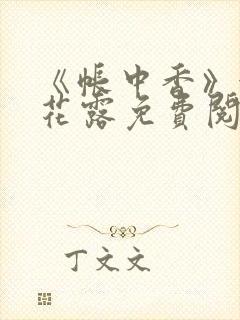 《帐中香》
花露免费阅
丁文文